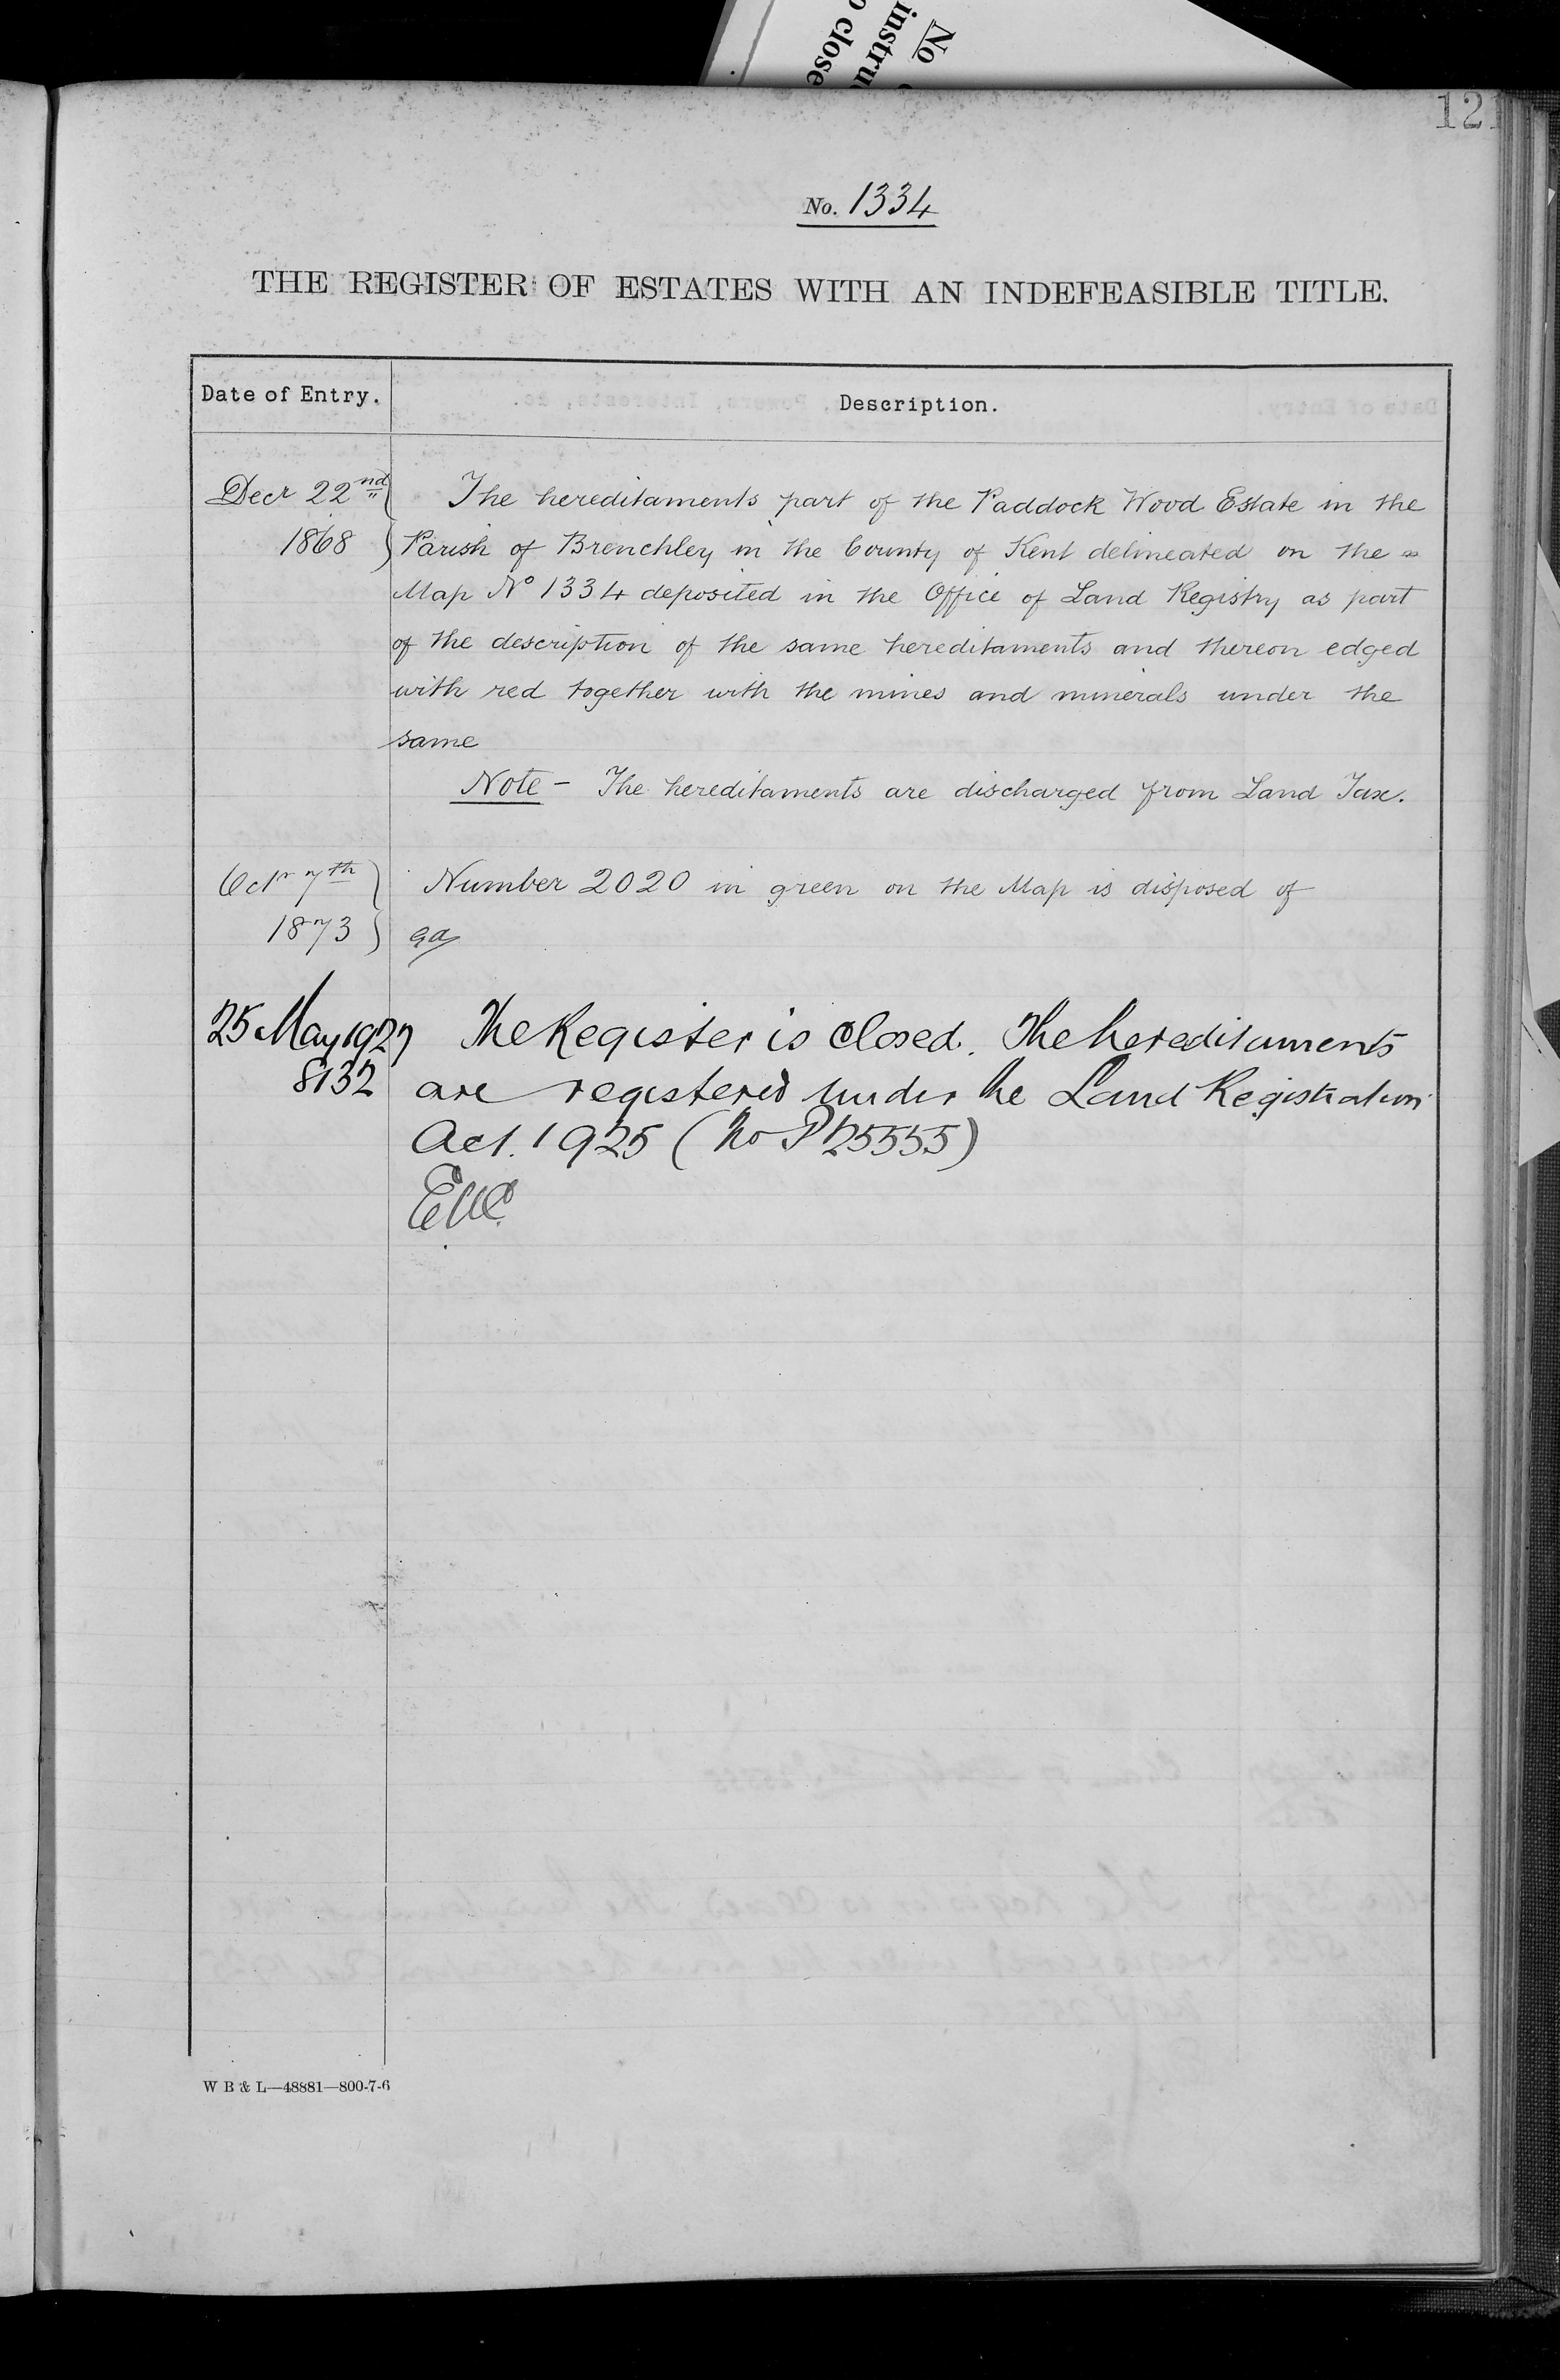 No
instru
o close
121
No. 1334
THE REGISTER OF ESTATES WITH AN INDEFEASIBLE TITLE.
Date of Entry. Description.
Decr 22nd The hereditaments part of the Paddock Wood Estate in the
1868 Parish of Brenchley in the County of Kent delineated on the
Map No 1334 deposited in the Office of Land Registry as part
of the description of the same hereditaments and thereon edged
with red together with the mines and minerals under the
same
Note - The hereditaments are discharged from Land Tax.
Octr 7th Number 2020 in green on the Map is disposed of
1873
25 May 1927 The Register is Closed. The hereditaments
8132 are registered under the Land Registration
Act. 1925 (No P25555)
W B & L—48881—800-7-6